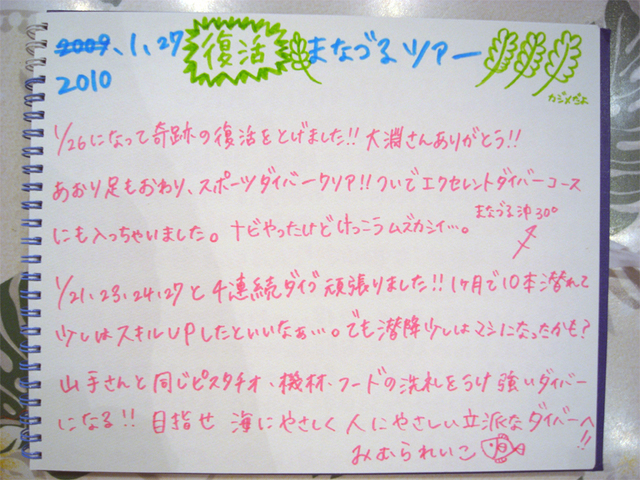 2009.1.27 復活 まなづるツアー
2010
カジメだよ
1/26になって奇跡の復活をとげました!! 大淵さんありがとう!!
あおり足もおわり、スポーツダイバークリア!! ついでエクセレントダイバーコース
にも入っちゃいました。ナビやったけどけっこうムズカシイ…。
まなづる沖30°
1/21、23、24、27と4連続ダイブ頑張りました!! 1ヶ月で10本潜れて
少しはスキルUPしたといいなぁ…。でも潜降少しはマシになったかも?
山手さんと同じピスタチオ、機材、フードの洗礼をうけ強いダイバー
になる!! 目指せ 海にやさしく人にやさしい立派なダイバーへ!!
みむられいこ